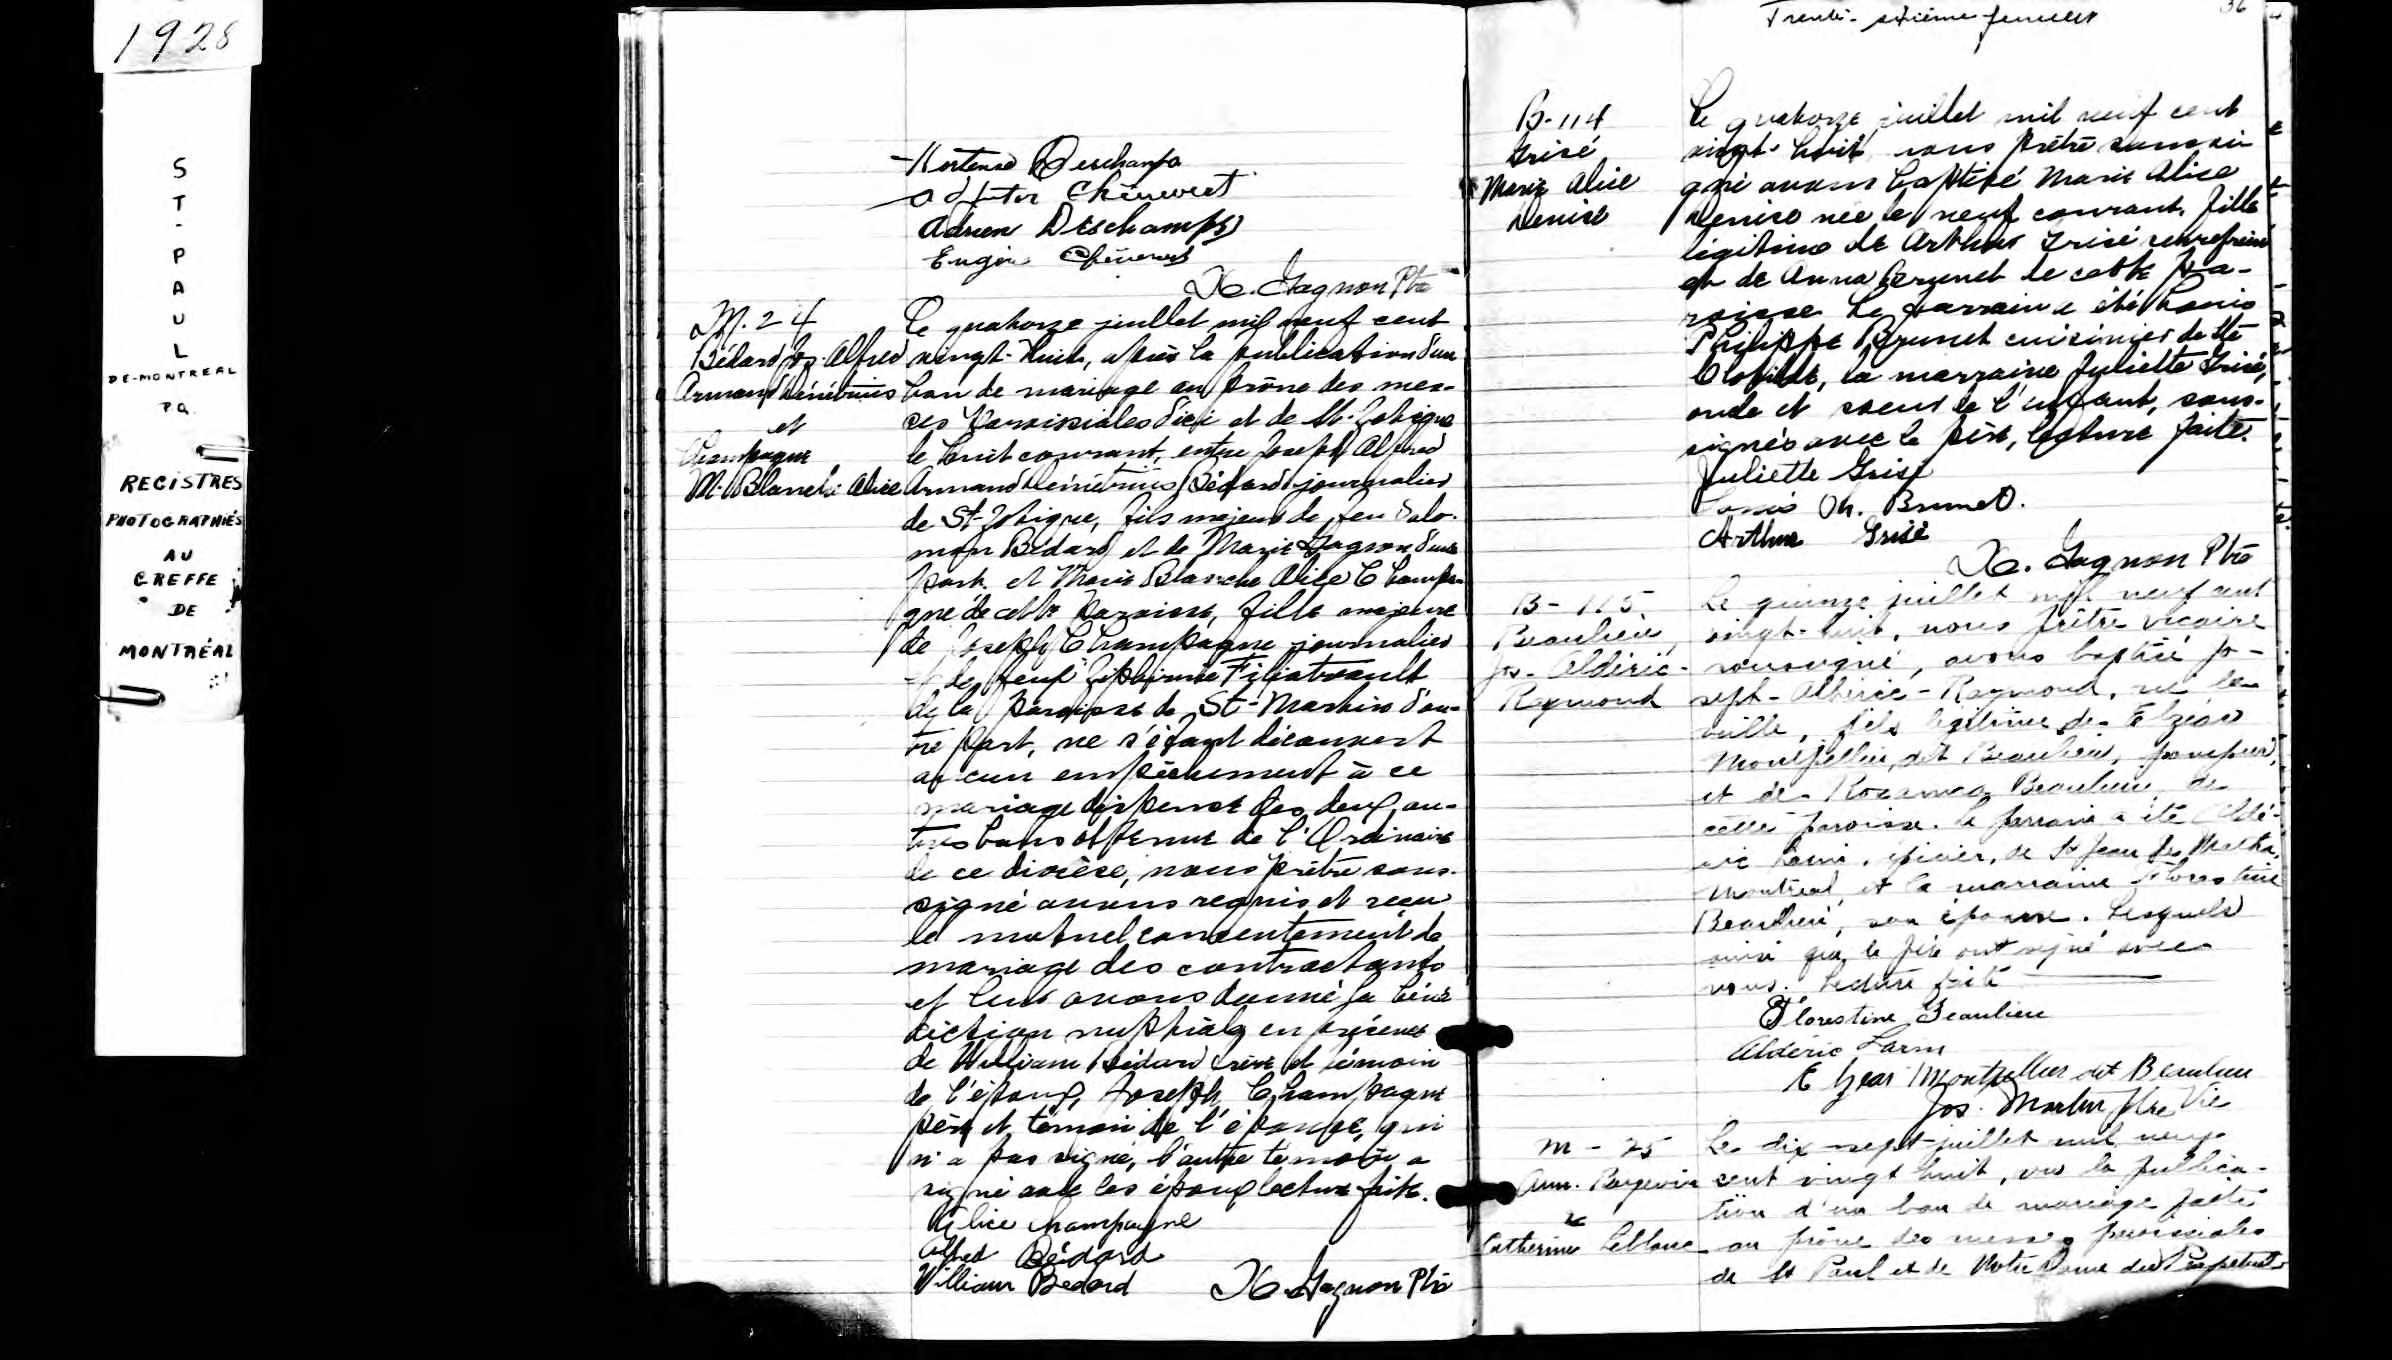 1928
ST-PAUL
DE-MONTREAL
P.Q.
REGISTRES
PHOTOGRAPHIÉS
AU
GREFFE
DE
MONTRÉAL
Hortense Deschamps
Chênevert
Adrien Deschamps
Eugène Chênevert
X. Gagnon Ptre
M. 24
Bédard Jos. Alfred
Armand
et
Champagne
M. Blanche Alice
Le quatorze juillet mil neuf cent
vingt-huit, après la publication d'un
ban de mariage au prône des mes-
ses paroissiales d'ici et de St-Zotique
le huit courant, entre Joseph Alfred
Armand Bédard journalier
de St-Zotique, fils majeur de feu Salo-
mon Bédard et de Marie Gagnon d'une
part, et Marie Blanche Alice Champa-
gne de cette paroisse, fille majeure
de Joseph Champagne journalier
et de feue Zéphirine Filiatreault
de la paroisse de St-Martin d'au-
tre part, ne s'étant découvert
aucun empêchement à ce
mariage dispense des deux au-
tres bans obtenue de l'Ordinaire
de ce diocèse, nous prêtre sous-
signé avons requis et reçu
le mutuel consentement de
mariage des contractants
et leur avons donné la béné
diction nuptiale en présence
de William Bédard frère et témoin
de l'époux, Joseph Champagne
père et témoin de l'épouse, qui
n'a pas signé, l'autre témoin a
signé avec les époux lecture faite.
Alice Champagne
Alfred Bédard
William Bedard X. Gagnon Ptre
Trente-sixième feuillet 36
B-114
Grisé
Marie Alice
Denise
Le quatorze juillet mil neuf cent
vingt-huit, nous prêtre soussi
gné avons baptisé Marie Alice
Denise née le neuf courant, fille
légitime de Arthur Grisé
et de Anna Brunet de cette pa-
roisse. Le parrain a été Louis
Philippe Brunet cuisinier de Ste
Clotilde, la marraine Juliette Grisé,
oncle et soeur de l'enfant, sous-
signés avec le père, lecture faite.
Juliette Grisé
Louis Ph. Brunet.
Arthur Grisé
X. Gagnon Ptre
B-115.
Beaulieu,
Jos-Aldéric-
Raymond
Le quinze juillet mil neuf cent
vingt-huit, nous prêtre vicaire
soussigné, avons baptisé Jo-
seph-Aldéric-Raymond, né la
veille, fils légitime de Elzéar
Montpellier, dit Beaulieu, pompier,
et de Rosanna Beaulieu, de
cette paroisse. Le parrain a été Aldé-
ric Larin, épicier, de St Jean de Matha,
Montréal, et la marraine Florestine
Beaulieu, son épouse. Lesquels
ainsi que le père ont signé avec
nous. Lecture faite
Florestine Beaulieu
Aldéric Larin
Elzéar Montpellier dit Beaulieu
Jos. Martin Ptre Vic
M-25
Arm.
&
Catherine Leblanc
Le dix-sept juillet mil neuf
cent vingt huit, vu la publica-
tion d'un ban de mariage faite
au prône des messes paroissiales
de St Paul et de Notre Dame du Perpétuel